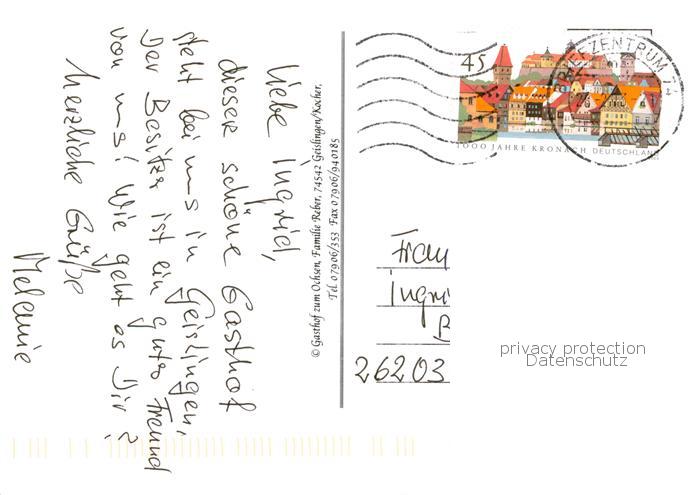 Liebe Ingrid,
dieser schöne Gasthof
steht bei uns in Geislingen,
Der Besitzer ist ein guter Freund
von uns! Wie geht es Dir?
Herzliche Grüße
Melanie
© Gasthof zum Ochsen, Familie Reber, 74542 Geislingen/Kocher,
Tel. 07906/353 Fax 07906/940185
45
BRIEFZENTRUM 74
1000 JAHRE KRONACH DEUTSCHLAND
Frau
Ingri
26203
privacy protection
Datenschutz